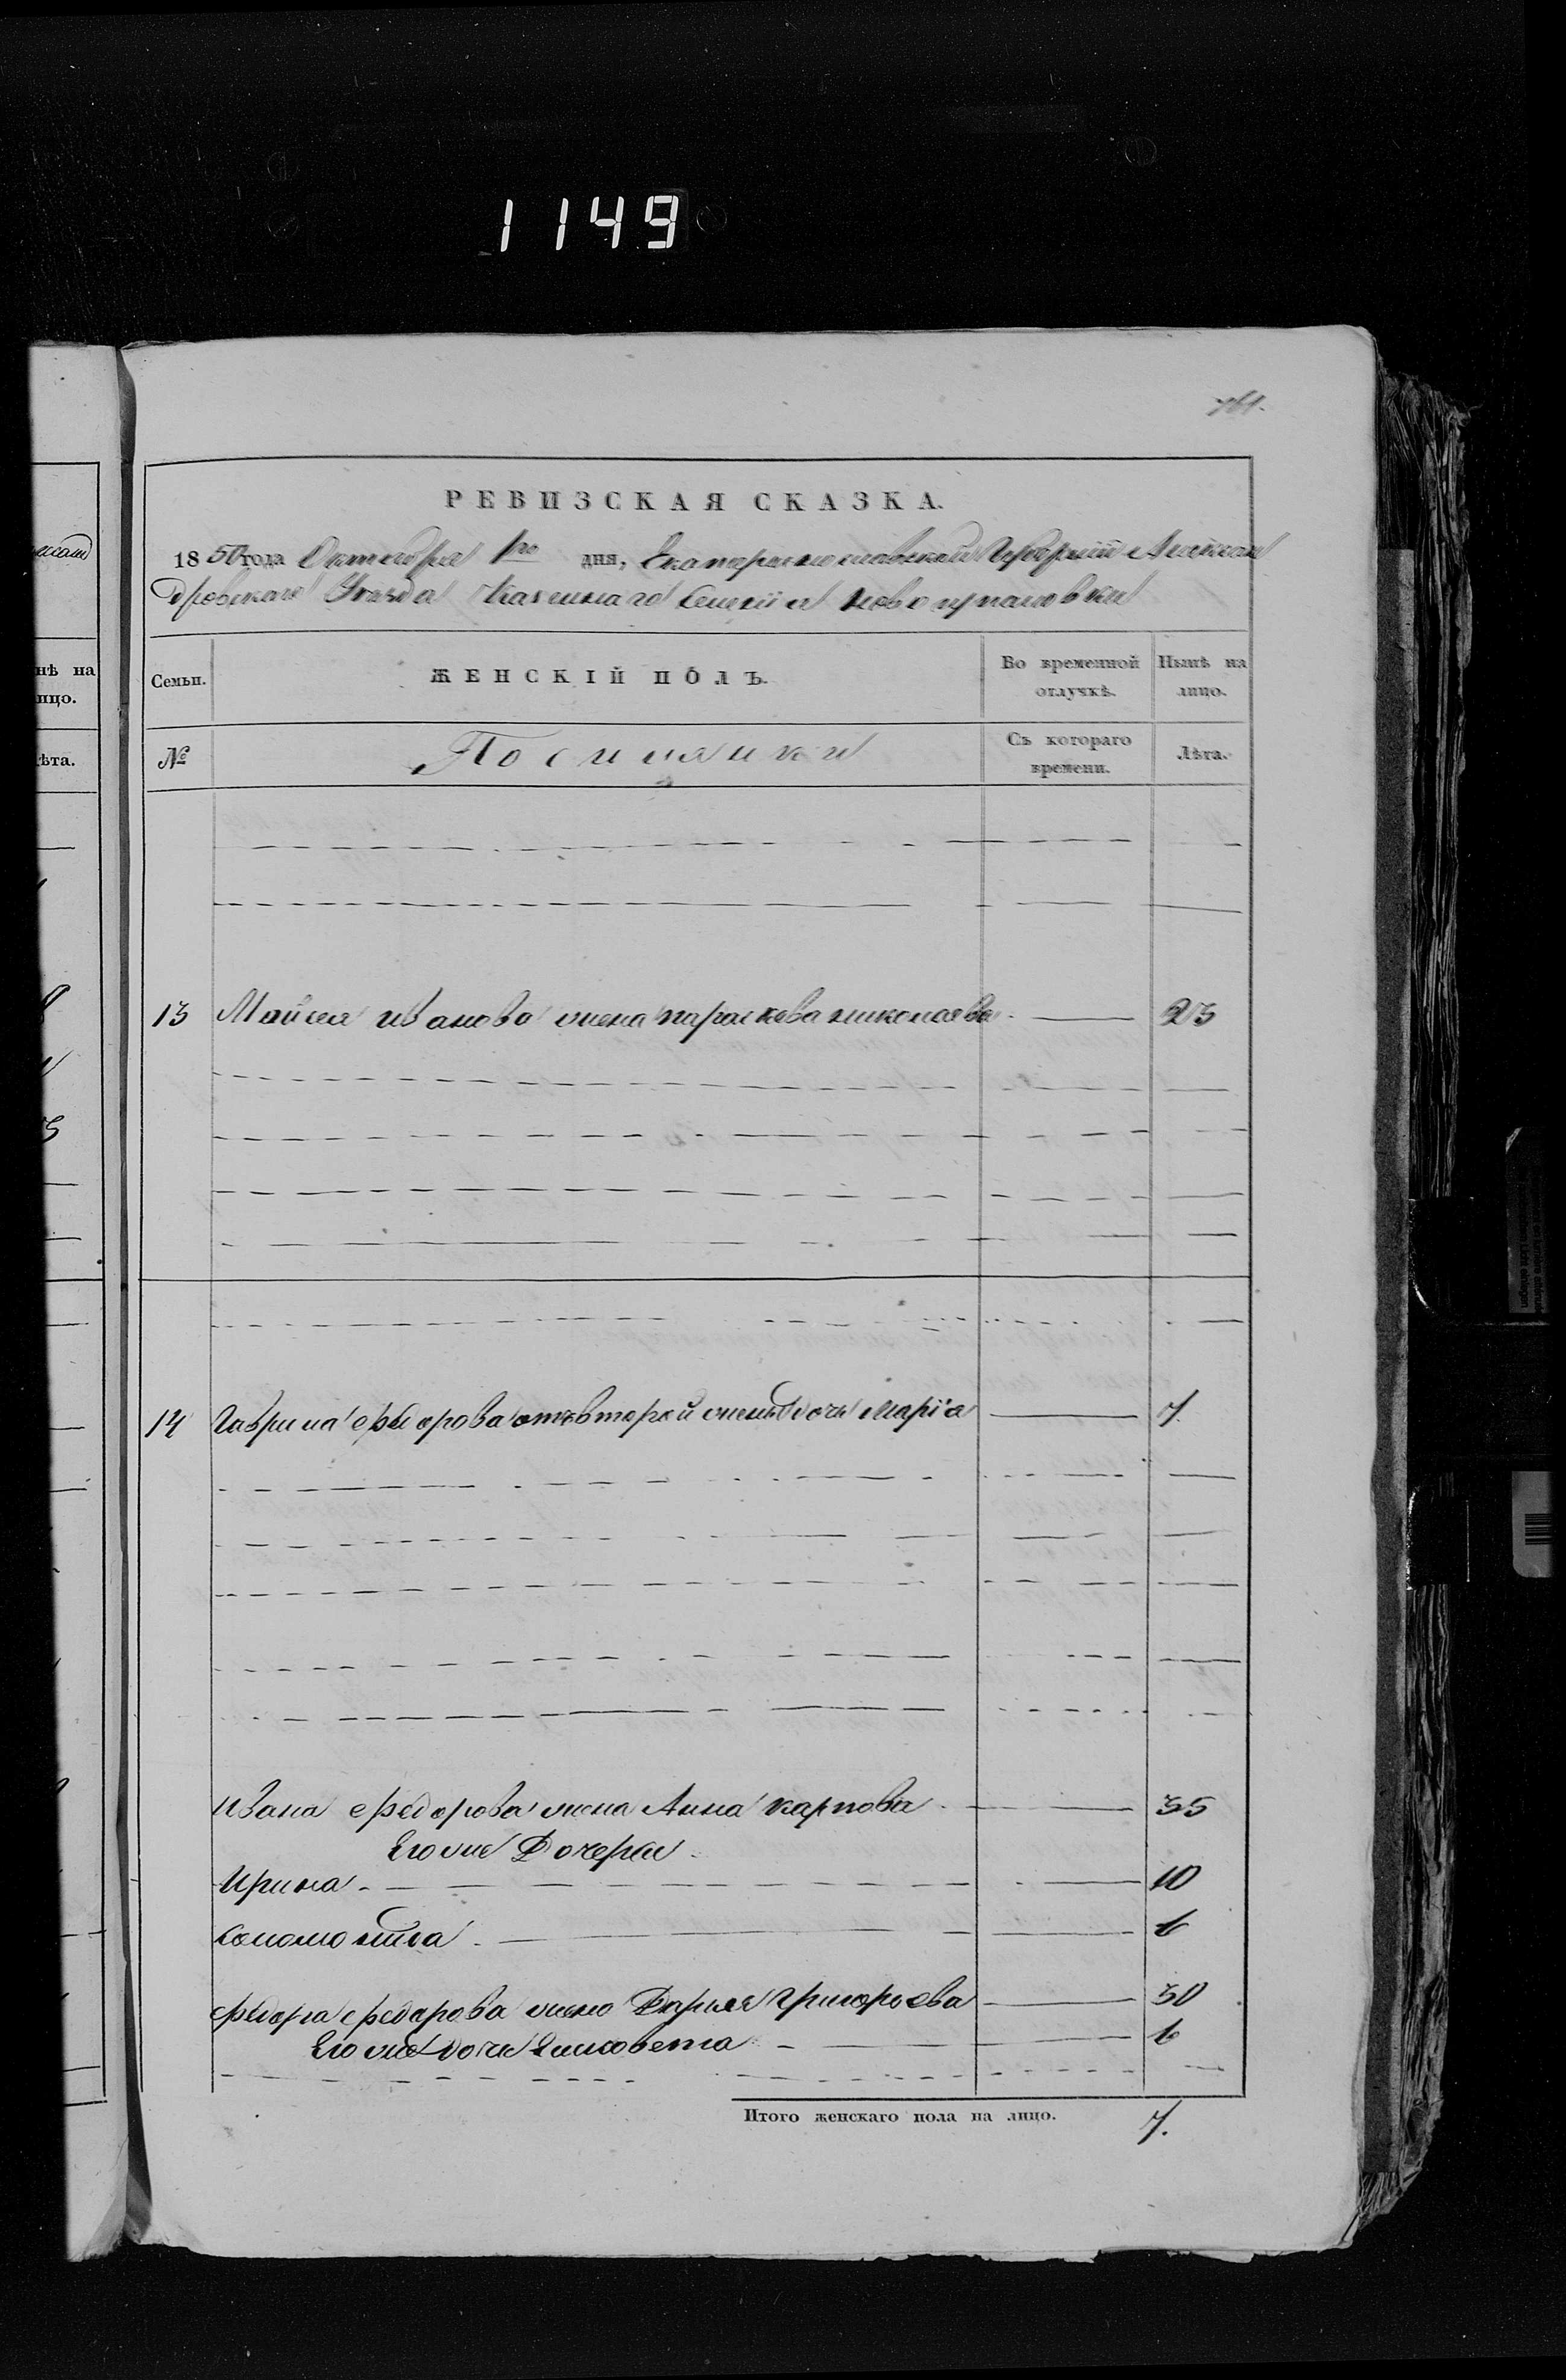 1149
761.
РЕВИЗСКАЯ СКАЗКА.
1850 года Октября 1го дня, Екатеринославской Губерніи Алексан
дровскаго Уезда Казеннаго Селенія
Семьи. ЖЕНСКІЙ ПОЛЪ. Во временной отлучкѣ. Нынѣ на лицо.
№ Поселянки Съ котораго времени. Лѣта.
13 Мойсея иванова жена параскева николаева 23
14 Гаврила федорова отъ второй жены дочь Марія 7
ивана федорова жена Анна карпова 35
Его же Дочери
Ирина 10
Соломонида 6
федора федорова жена Дарья григорьева 30
Его же дочь Елисавета 6
Итого женскаго пола на лицо. 7.
нѣ на
ицо.
ѣта.